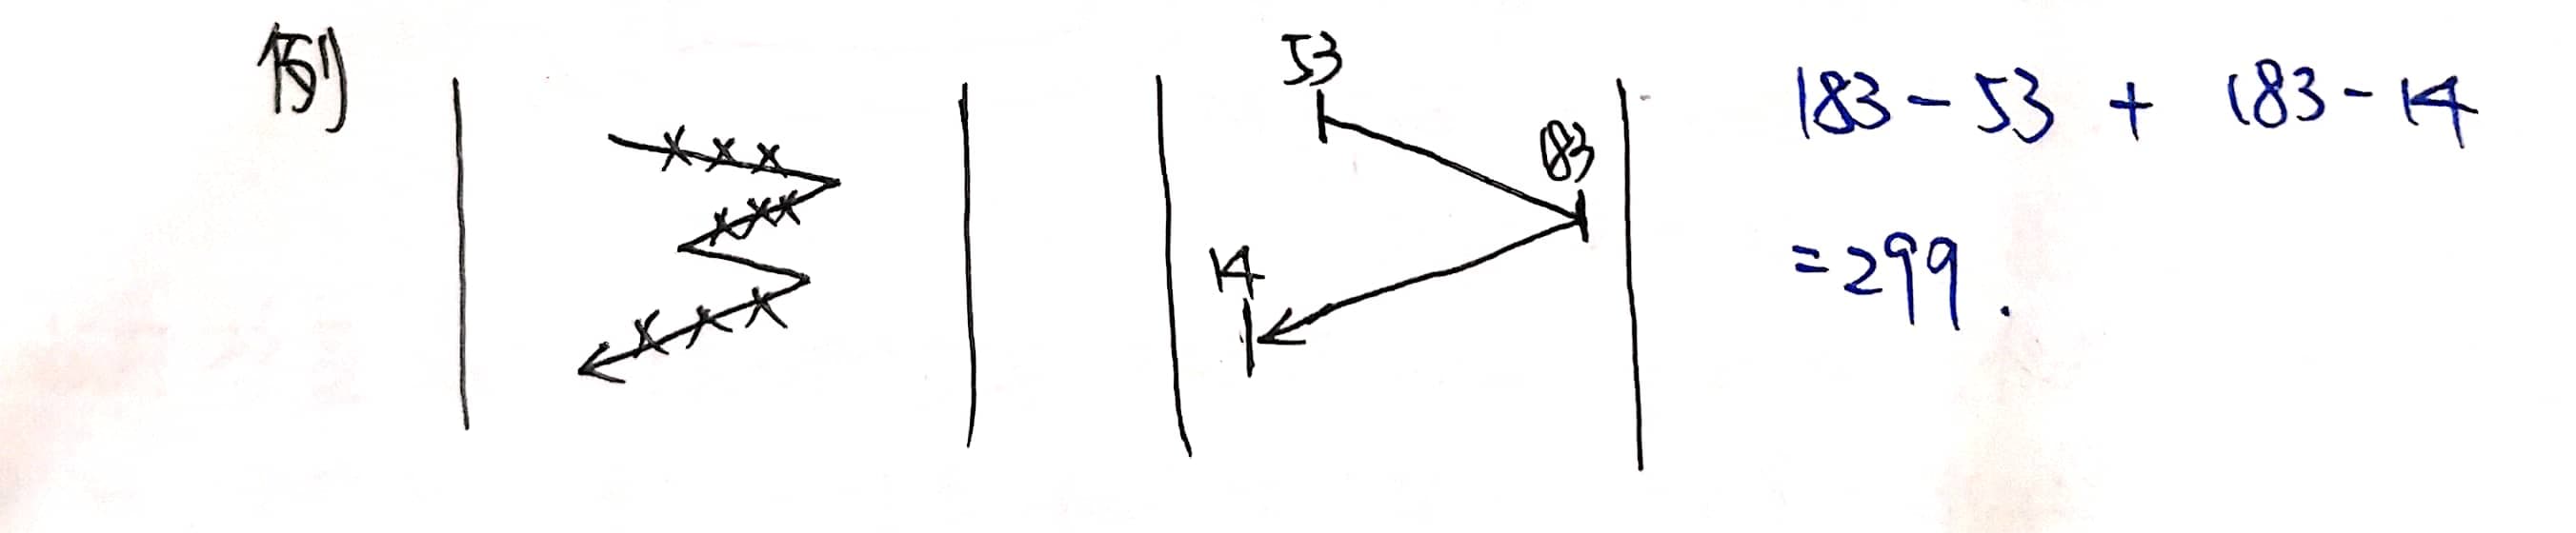 例
53
183
14
183-53 + 183-14
=299.